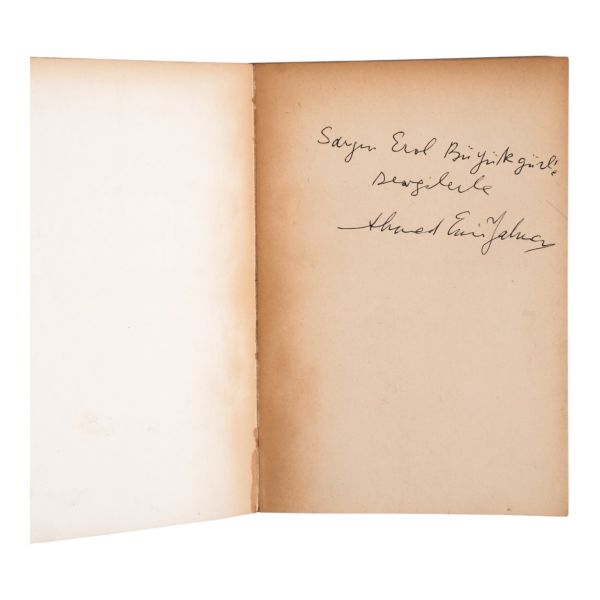 Sayın Erol Büyükgürl'e
sevgilerle
Ahmed Emin Yalman